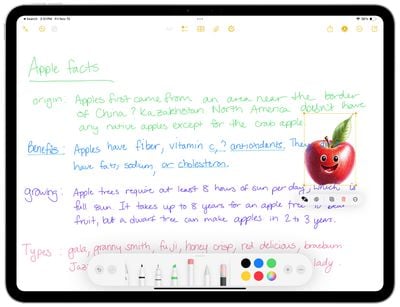 Apple facts
origin: Apples first came from an area near the border
of China & Kazakhstan North America doesn't have
any native apples except for the crab apple
Benefits: Apples have fiber, vitamin c, & antioxidants. The
have fat, sodium, or cholesterol.
growing: Apple trees require at least 8 hours of sun per day, which is
full sun. It takes up to 8 years for an apple tree
fruit, but a dwarf tree can make apples in 2 to 3 years.
Types: gala, granny smith, fuji, honey crisp, red delicious, braeburn
Jaz lady